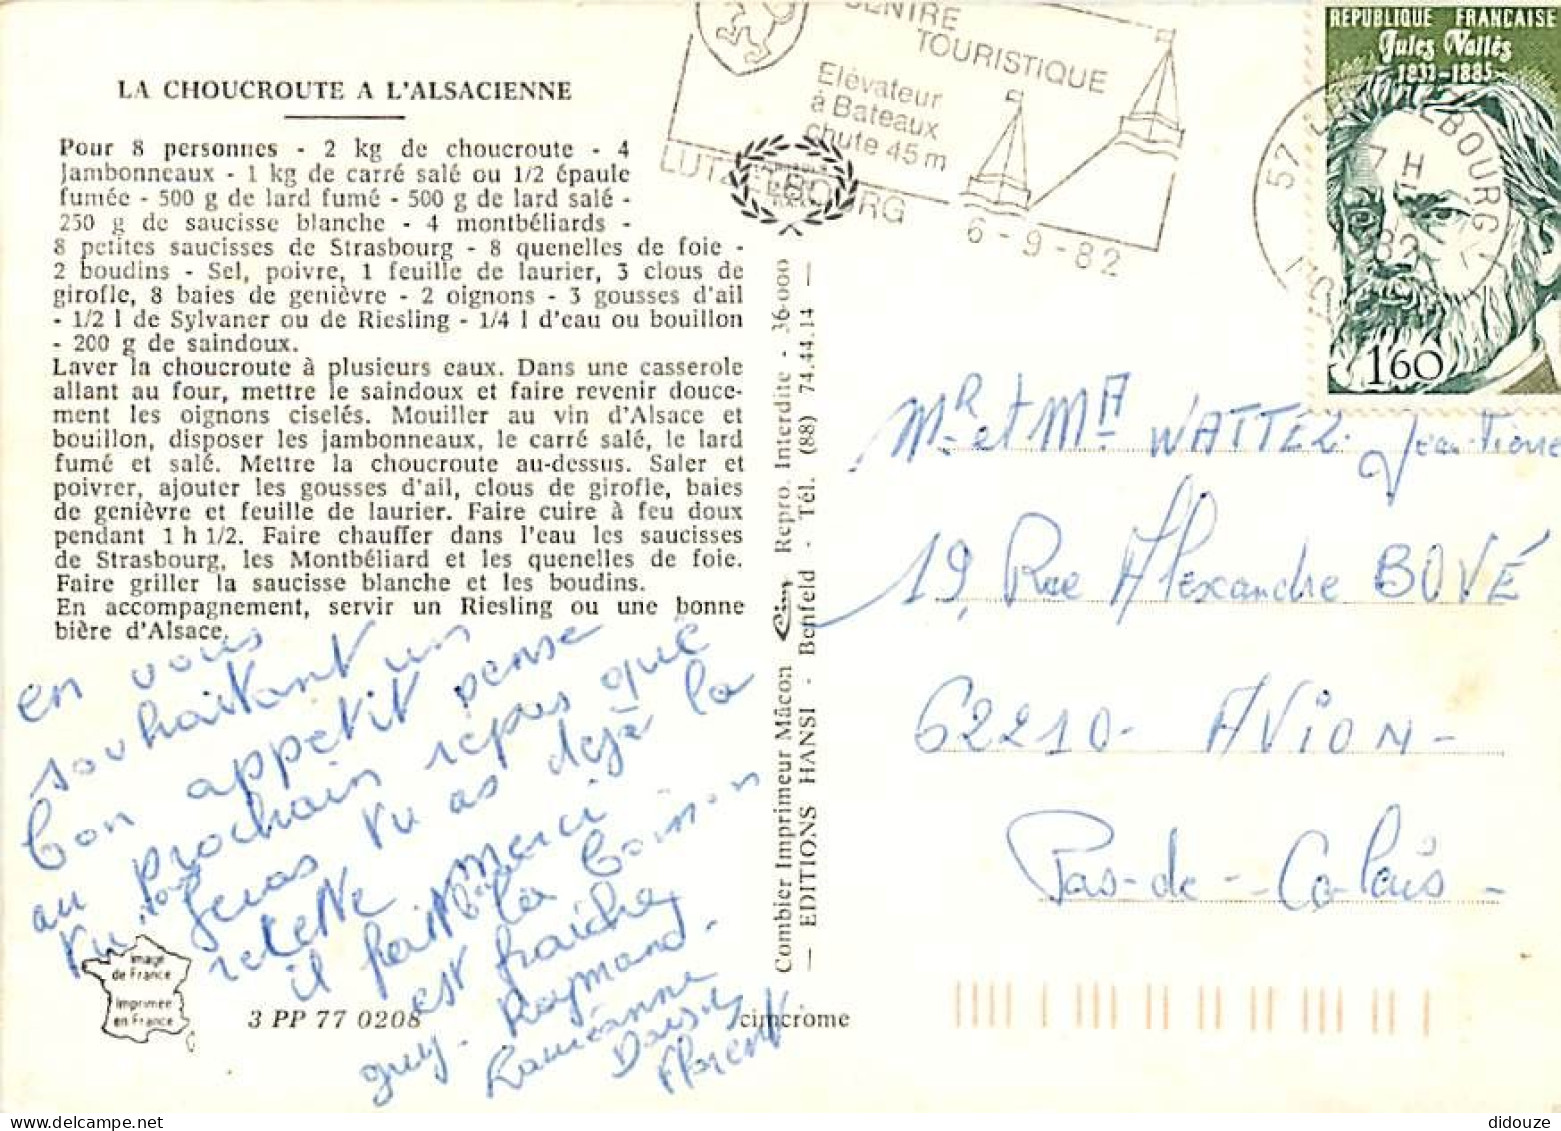 LA CHOUCROUTE A L'ALSACIENNE
Pour 8 personnes - 2 kg de choucroute - 4
Jambonneaux - 1 kg de carré salé ou 1/2 épaule
fumée - 500 g de lard fumé - 500 g de lard salé -
250 g de saucisse blanche - 4 montbéliards -
8 petites saucisses de Strasbourg - 8 quenelles de foie -
2 boudins - Sel, poivre, 1 feuille de laurier, 3 clous de
girofle, 8 baies de genièvre - 2 oignons - 3 gousses d'ail
- 1/2 l de Sylvaner ou de Riesling - 1/4 l d'eau ou bouillon
- 200 g de saindoux.
Laver la choucroute à plusieurs eaux. Dans une casserole
allant au four, mettre le saindoux et faire revenir douce-
ment les oignons ciselés. Mouiller au vin d'Alsace et
bouillon, disposer les jambonneaux, le carré salé, le lard
fumé et salé. Mettre la choucroute au-dessus. Saler et
poivrer, ajouter les gousses d'ail, clous de girofle, baies
de genièvre et feuille de laurier. Faire cuire à feu doux
pendant 1 h 1/2. Faire chauffer dans l'eau les saucisses
de Strasbourg, les Montbéliard et les quenelles de foie.
Faire griller la saucisse blanche et les boudins.
En accompagnement, servir un Riesling ou une bonne
bière d'Alsace.
en vous
souhaitant un
bon appetit pense
au prochain repas que
tu nous feras tu as dejà la
recette merci
il fait beau la boisson
est fraiche
guy. Raymond.
Lauréanne
Daisy
Florent
Image
de France
Imprimée
en France
3 PP 77 0208
cimcrome
Combier Imprimeur Mâcon Cim Repro. Interdite - 36-000
— EDITIONS HANSI - Benfeld - Tél. (88) 74.44.14 —
CENTRE
TOURISTIQUE
Elévateur
à Bateaux
chute 45 m
LUTZELBOURG
6-9-82
RÉPUBLIQUE FRANÇAISE
Jules Vallès
1832-1885
1,60
57
7 H
82
Mr et Mme WATTEZ Jean-Pierre
19, Rue Alexandre BOVÉ
62210 - AVION -
Pas-de-Calais -
didouze